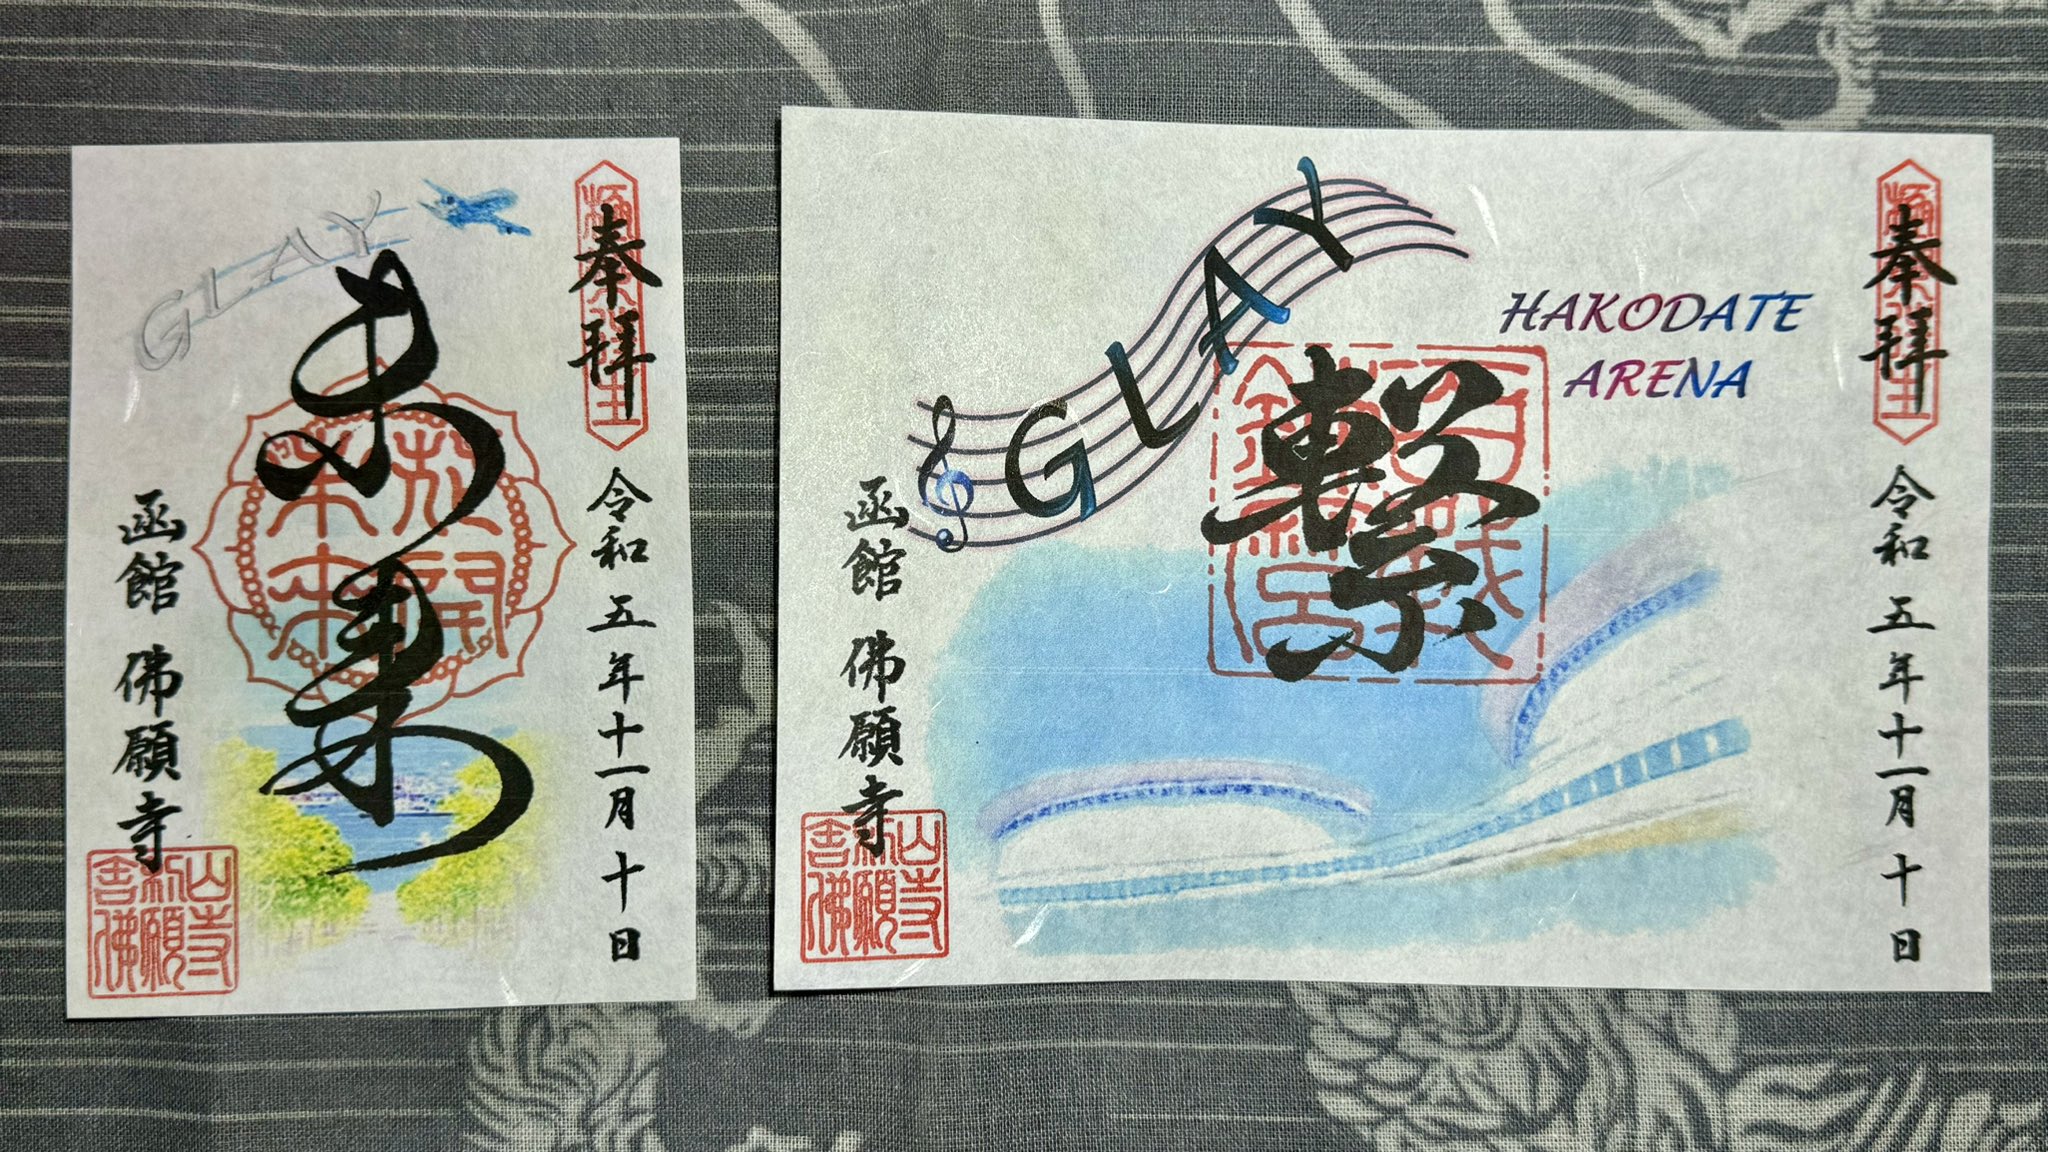 奉拝
令和五年十一月十日
GLAY
未来
函館 佛願寺
奉拝
令和五年十一月十日
HAKODATE
ARENA
GLAY
繋
函館 佛願寺